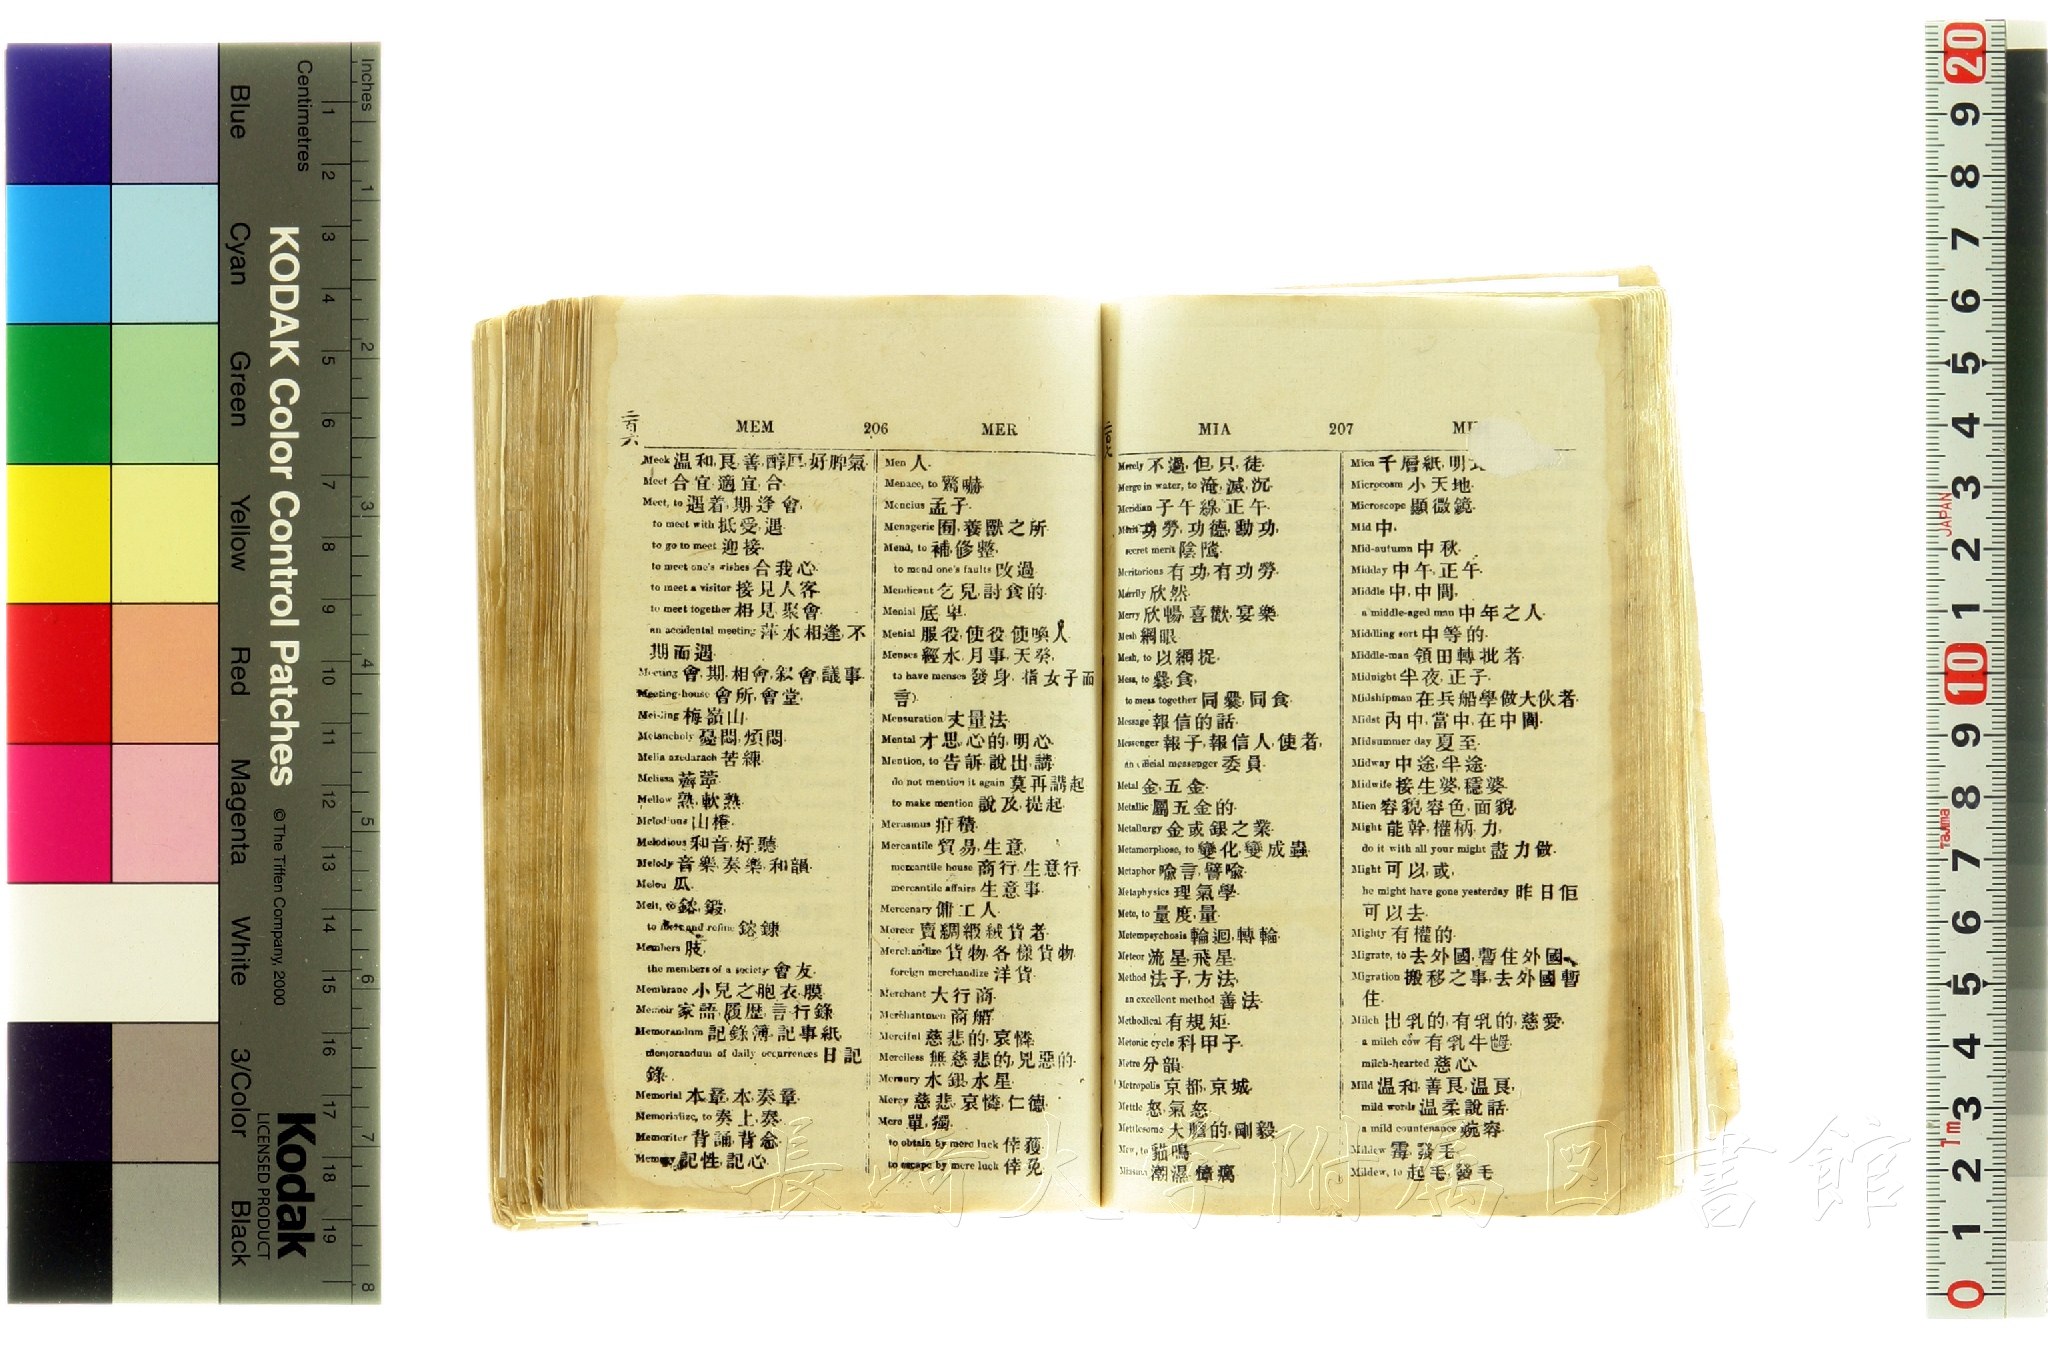 Inches
Centimetres
Blue
Cyan
Green
Yellow
Red
Magenta
White
3/Color
Black
KODAK Color Control Patches
© The Tiffen Company, 2000
Kodak
LICENSED PRODUCT
二百六
MEM 206 MER
Meek 温和,良善,醇厚,好脾氣.
Meet 合宜,適宜,合.
Meet, to 遇着,期,逢,會,
to meet with 抵受,遇.
to go to meet 迎接.
to meet one's wishes 合我心.
to meet a visitor 接見人客.
to meet together 相見,聚會.
an accidental meeting 萍水相逢,不
期而遇.
Meeting 會,期,相會,叙會,議事.
Meeting-house 會所,會堂,
Mei-ling 梅嶺山.
Melancholy 憂悶,煩悶.
Melia azedarach 苦練.
Melissa
Mellow 熟,軟熟.
Melodious 和音,好聽.
Melody 音樂,奏樂,和韻.
Melon 瓜.
Melt, to 鎔,鍛,
to melt and refine 鎔鍊
Members 肢,
the members of a society 會友.
Membrane 小兒之胞衣,膜.
Memoir 家語,履歷,言行錄.
Memorandum 記錄簿,記事紙,
memorandum of daily occurrences 日記
錄.
Memorial 本章,本,奏章.
Memorialize, to 奏,上奏.
Memoriter 背誦,背念.
Memory 記性,記心.
Men 人.
Menace, to 驚嚇.
Mencius 孟子.
Menagerie 囿,養獸之所.
Mend, to 補,修整,
to mend one's faults 改過.
Mendicant 乞兒,討食的.
Menial 底卑.
Menial 服役,使役,使喚人.
Menses 經水,月事,天癸,
to have menses 發身,(指女子而
言).
Mensuration 丈量法.
Mental 才思,心的,明心.
Mention, to 告訴,說出,講,
do not mention it again 莫再講起
to make mention 說及,提起.
Merasmus 疳積.
Mercantile 貿易,生意,
mercantile house 商行,生意行.
mercantile affairs 生意事.
Mercenary 傭工人.
Mercer 賣綢緞絨貨者.
Merchandize 貨物,各樣貨物,
foreign merchandize 洋貨.
Merchant 大行商.
Merchantmen 商船.
Merciful 慈悲的,哀憐.
Merciless 無慈悲的,兇惡的.
Mercury 水銀,水星.
Mercy 慈悲,哀憐,仁德.
Mere 單,獨,
to obtain by mere luck 倖獲.
to escape by mere luck 倖免.
MIA 207
Merely 不過,但,只,徒.
Merge in water, to 淹,滅,沉.
Meridian 子午線,正午.
Merit 功勞,功德,勳功,
secret merit 陰隲.
Meritorious 有功,有功勞.
Merrily 欣然.
Merry 欣暢,喜歡,宴樂.
Mesh 網眼.
Mesh, to 以網捉.
Mess, to 爨,食,
to mess together 同爨,同食.
Message 報信的話.
Messenger 報子,報信人,使者,
an official messenger 委員.
Metal 金,五金.
Metallic 屬五金的.
Metallurgy 金或銀之業.
Metamorphose, to 變化,變成蟲.
Metaphor 喻言,譬喻.
Metaphysics 理氣學.
Mete, to 量度,量.
Metempsychosis 輪迴,轉輪.
Meteor 流星,飛星.
Method 法子,方法,
an excellent method 善法.
Methodical 有規矩.
Metonic cycle 科甲子.
Metre 分韻.
Metropolis 京都,京城.
Mettle 怒氣,怒.
Mettlesome 大膽的,剛毅.
Mew, to 貓鳴.
Miasma 潮濕,瘴癘
Mica 千層紙,明
Microcosm 小天地.
Microscope 顯微鏡.
Mid 中.
Mid-autumn 中秋.
Midday 中午,正午.
Middle 中,中間,
a middle-aged man 中年之人.
Middling sort 中等的.
Middle-man 領田轉批者.
Midnight 半夜,正子.
Midshipman 在兵船學做大伙者.
Midst 內中,當中,在中間.
Midsummer day 夏至.
Midway 中途,半途.
Midwife 接生婆,穩婆.
Mien 容貌,容色,面貌.
Might 能幹,權柄,力,
do it with all your might 盡力做.
Might 可以,或,
he might have gone yesterday 昨日佢
可以去.
Mighty 有權的.
Migrate, to 去外國,暫住外國.
Migration 搬移之事,去外國暫
住.
Milch 出乳的,有乳的,慈愛,
a milch cow 有乳牛
milch-hearted 慈心.
Mild 温和,善良,温良,
mild words 温柔說話.
a mild countenance 婉容.
Mildew 霉,發毛.
Mildew, to 起毛,發毛
長崎大学附属図書館
JAPAN
Tajima
1m